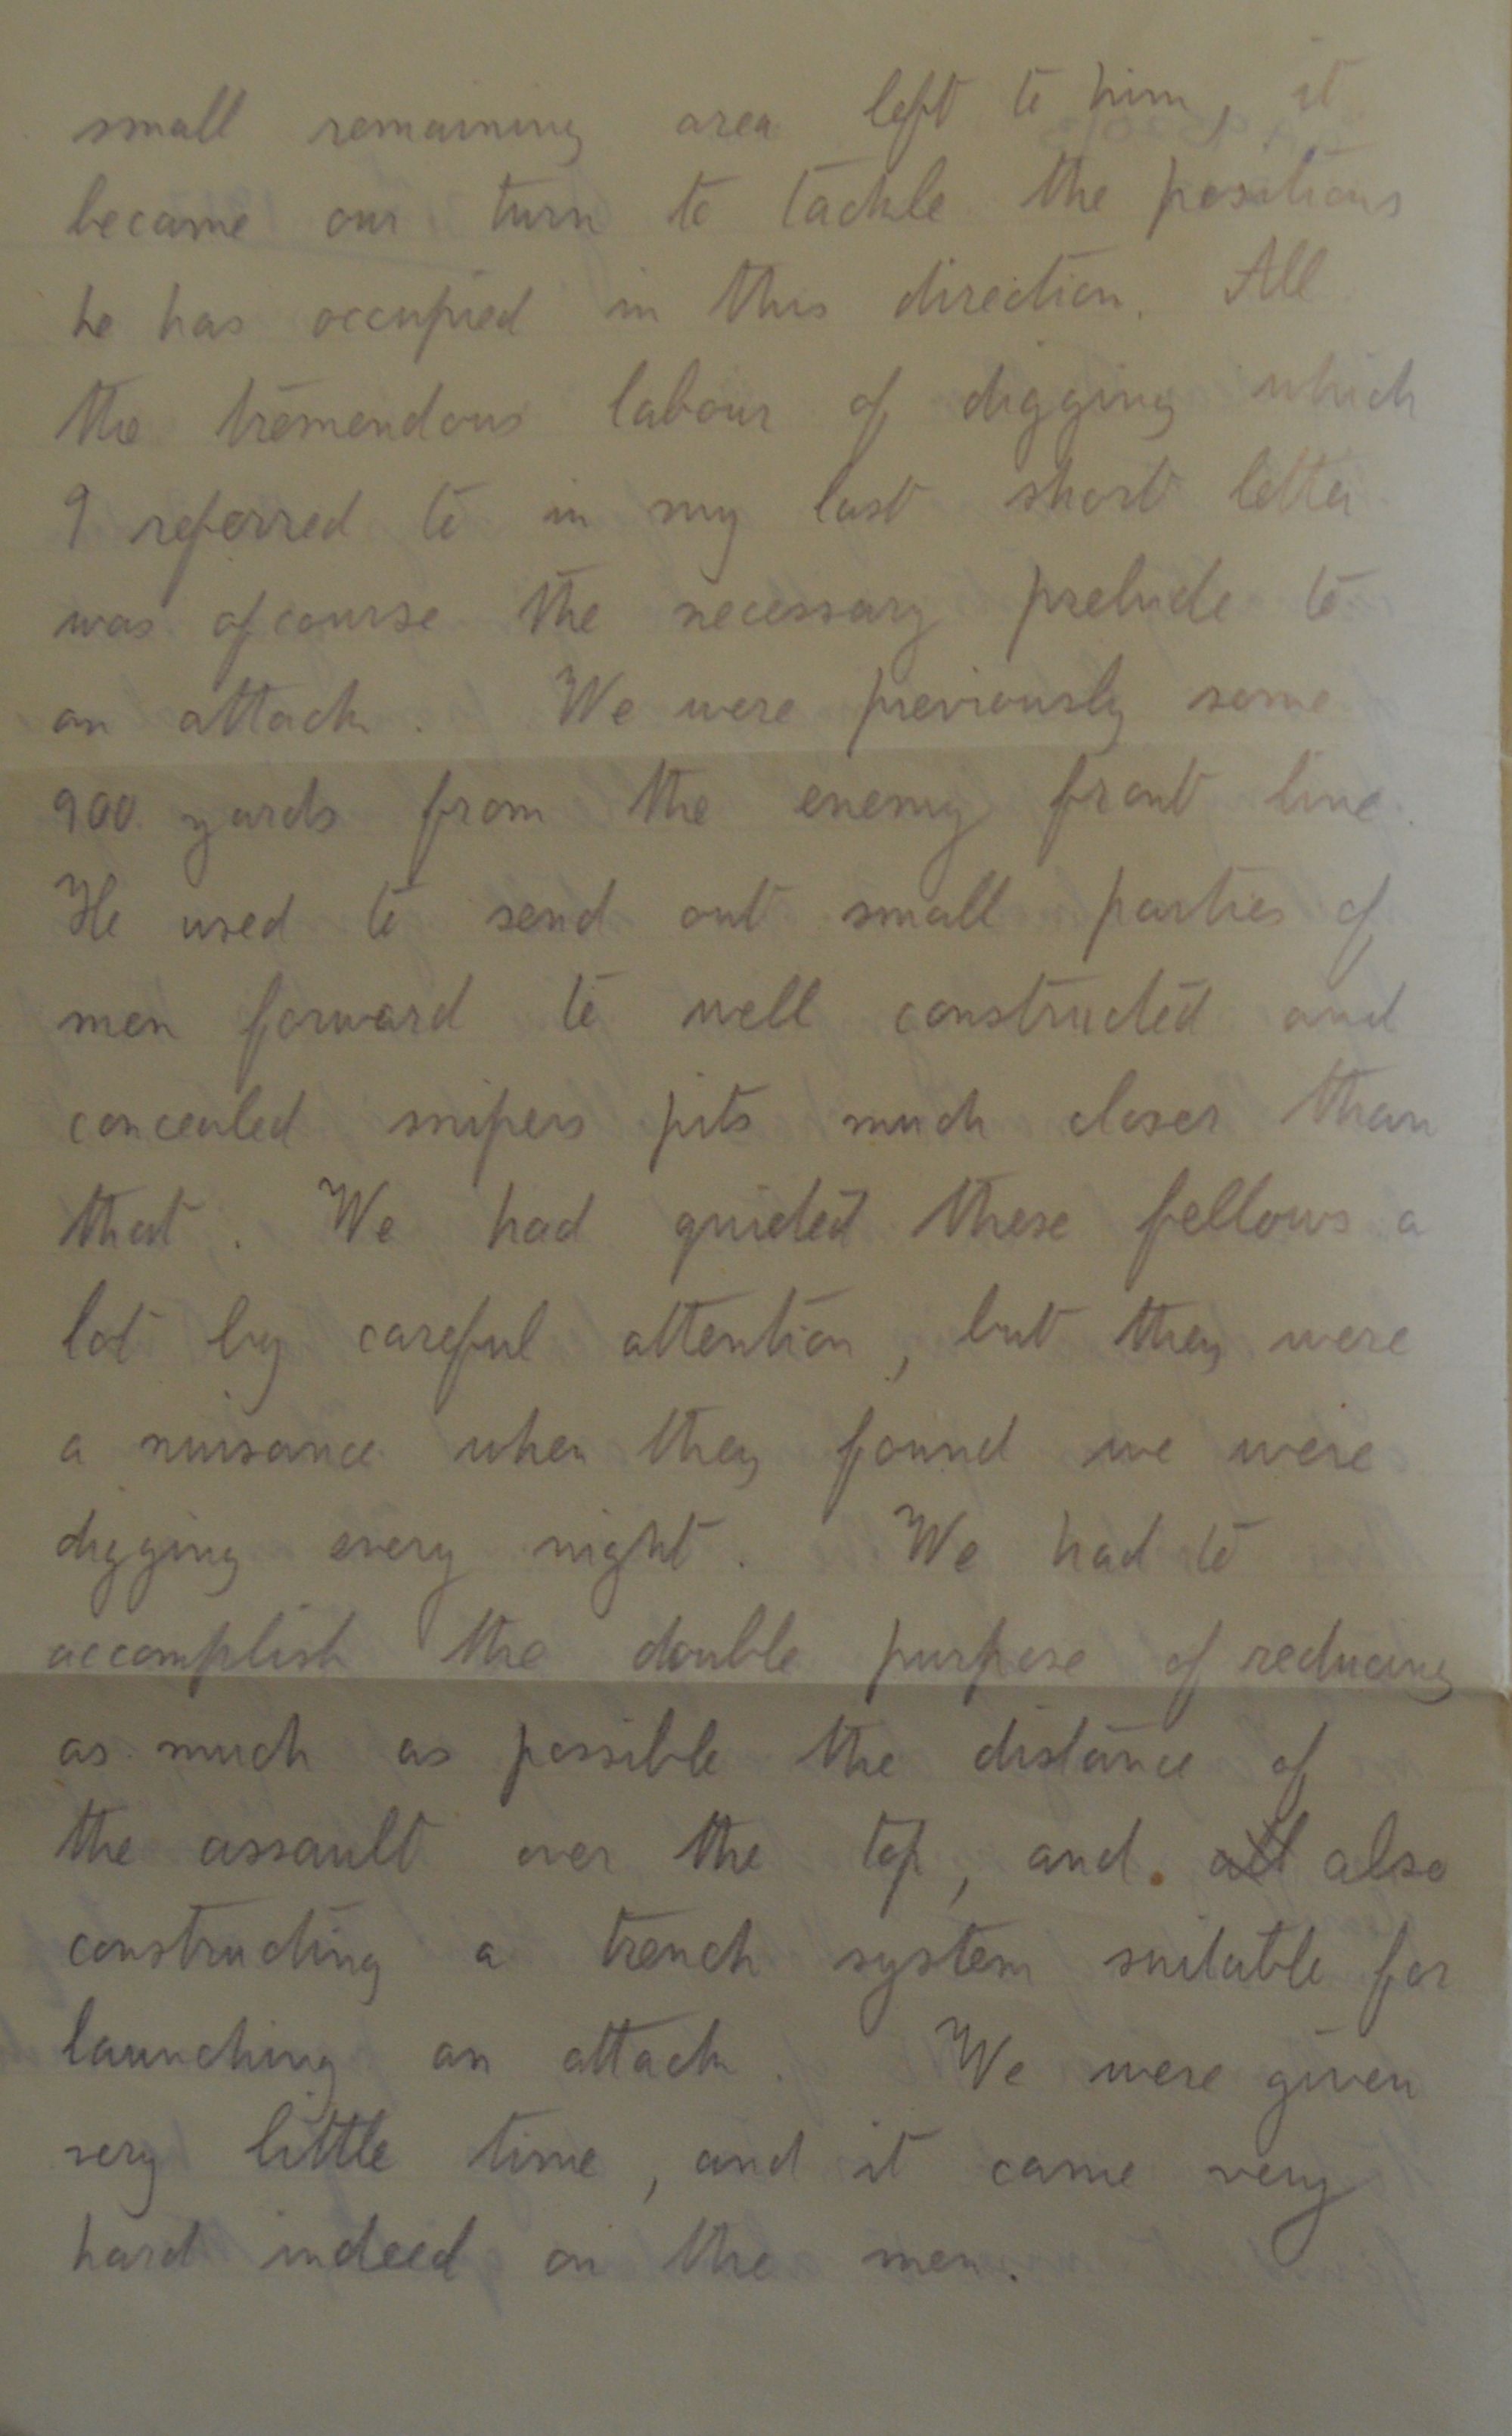 small remaining area left to him, it
became our turn to tackle the positions
he has occupied in this direction. All
the tremendous labour of digging which
I referred to in my last short letter
was ofcourse the necessary prelude to
an attack. We were previously some
900 yards from the enemy front line.
He used to send out small parties of
men forward to well constructed and
concealed snipers pits much closer than
that. We had quieted these fellows a
lot by careful attention, but they were
a nuisance when they found we were
digging every night. We had to
accomplish the double purpose of reducing
as much as possible the distance of
the assault over the top, and. also
constructing a trench system suitable for
launching an attack. We were given
very little time, and it came very
hard indeed on the men.